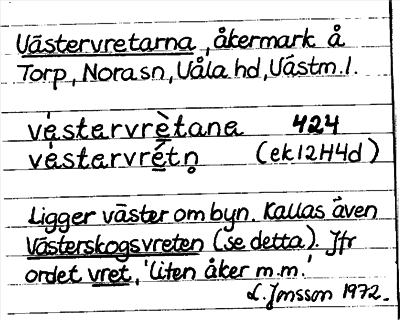 Västervretarna, åkermark å
Torp, Nora sn, Våla hd, Västm. l.
vä́stervrètana 424
vä́stervrétn̥ (ek 12H4d)
Ligger väster om byn. Kallas även
Västerskogsvreten (se detta). Jfr
ordet vret, 'liten åker m.m.'
L. Jonsson 1972.